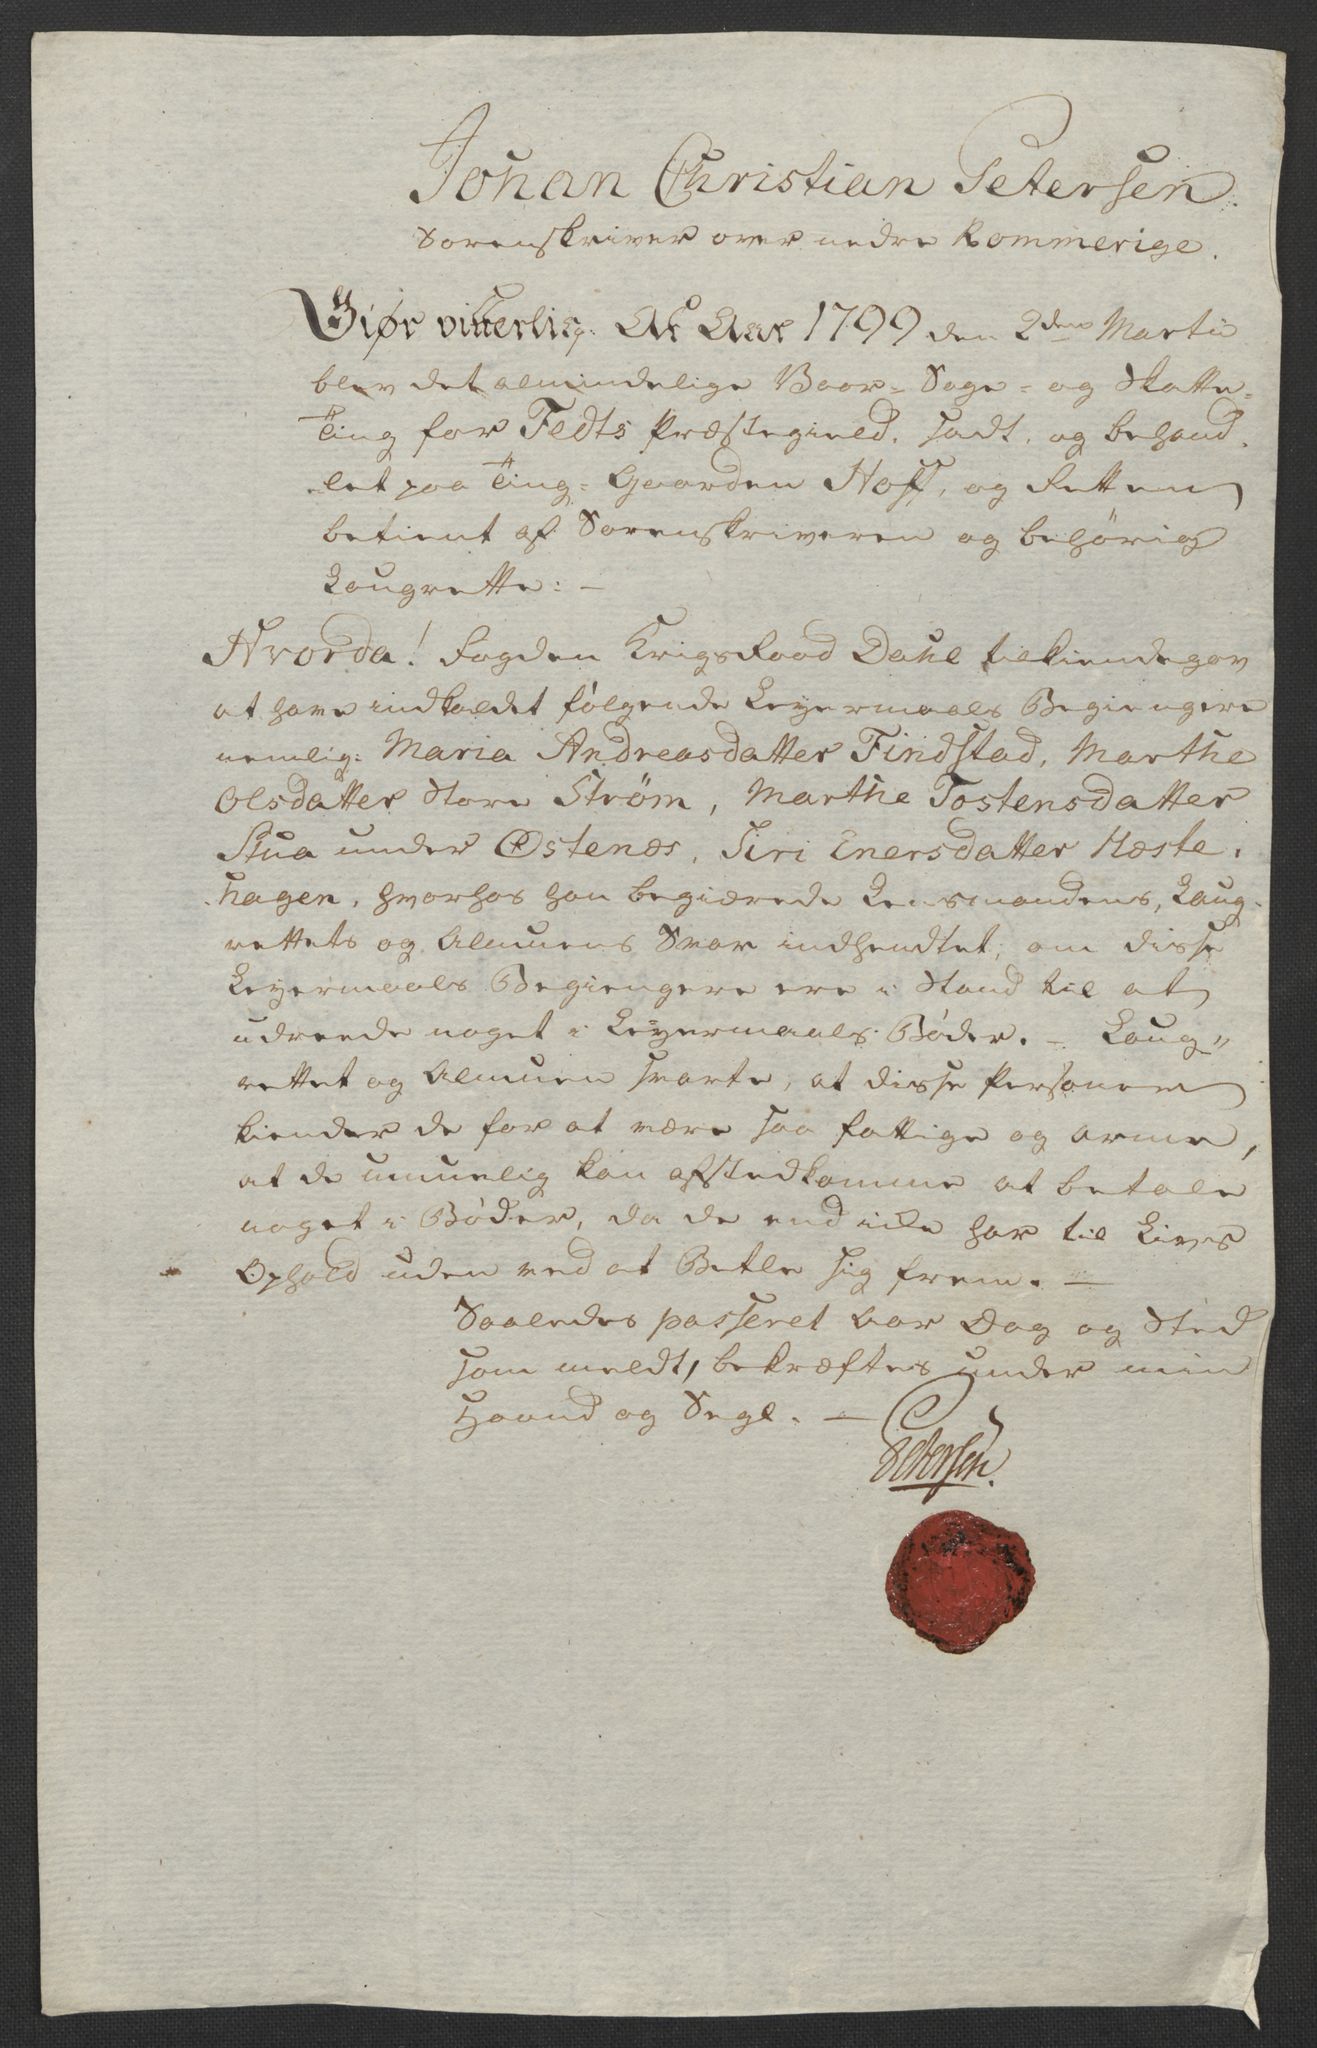 Johan Christian Petersen
Sorenskriver over nedre Rommerige.
Giør vitterlig. At Aar 1799 den 2den Martii
blev det almindelige Vaar- Sage- og Skatte-
Ting for Fedts Præstegield, sadt, og behand-
let paa Ting-Gaarden Hoff, og Retten
betient af Sorenskriveren og behørig
Laugrette: -
Hvorda! Fogden Krigs Raad Dahl tilkiendegav
at have indkaldet følgende Leyermaals Begiengere
nemlig: Maria Andreasdatter Findstad, Marthe
Olsdatter Store Strøm, Marthe Tostensdatter
Stua under Østenæs, Siri Enersdatter Hæste-
hagen, hvorhos han begiærede Lensmandens, Laug-
rettets og Almuens Svar indhendtet, om disse
Leyermaals Begiengere ere i Stand til at
udreede noget i Leyermaals Bøder. - Laug-
rettet og Almuen svarte, at disse Personer
kiender de for at være saa fattige og arme,
at de umuelig kan afstedkomme at betale
noget i Bøder, da de end icke har til Livs
Ophold uden ved at Betle sig frem. -
Saaledes passeret Aar Dag og Sted
som meldt, bekræftes under min
Haand og Segl. -
Petersen.